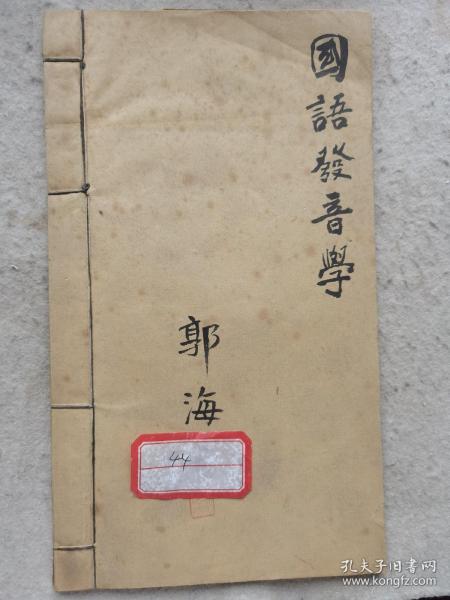 國語發音學
郭海
44
孔夫子旧书网
www.kongfz.com